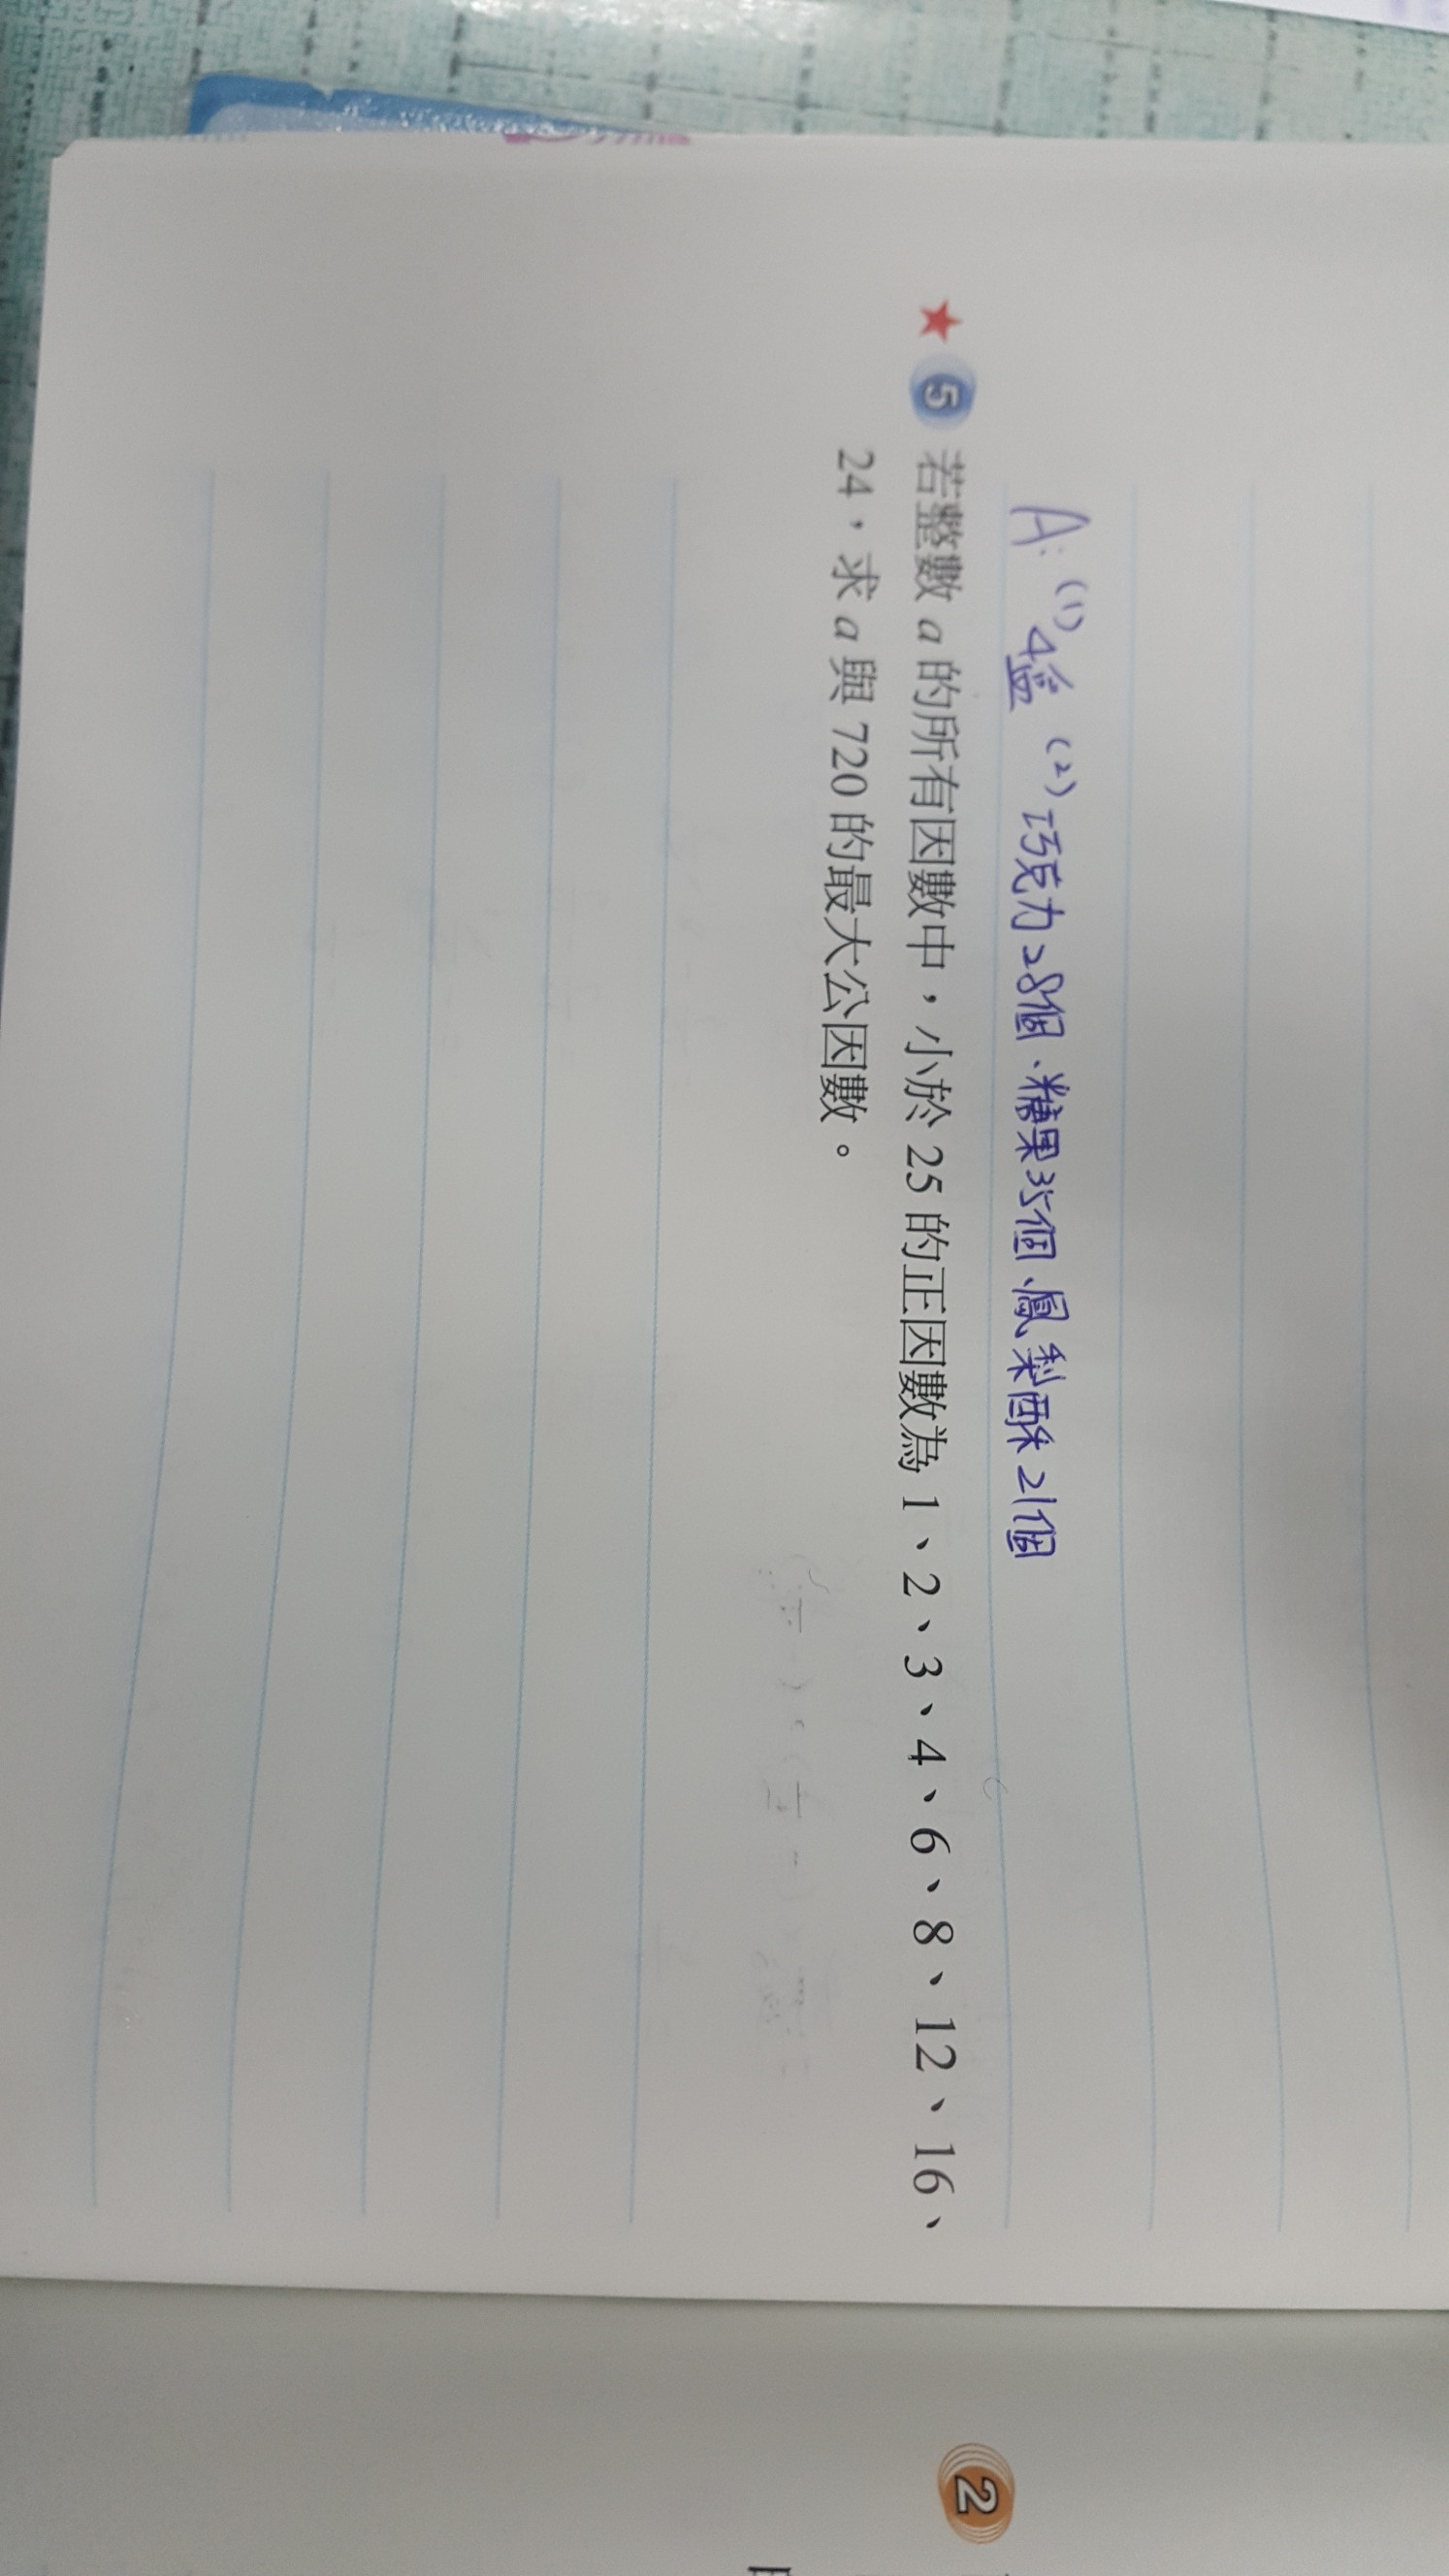 A: (1) 4盒 (2) 巧克力28個、糖果35個、鳳梨酥21個
★ 5 若整數 a 的所有因數中，小於 25 的正因數為 1、2、3、4、6、8、12、16、
24，求 a 與 720 的最大公因數。
2